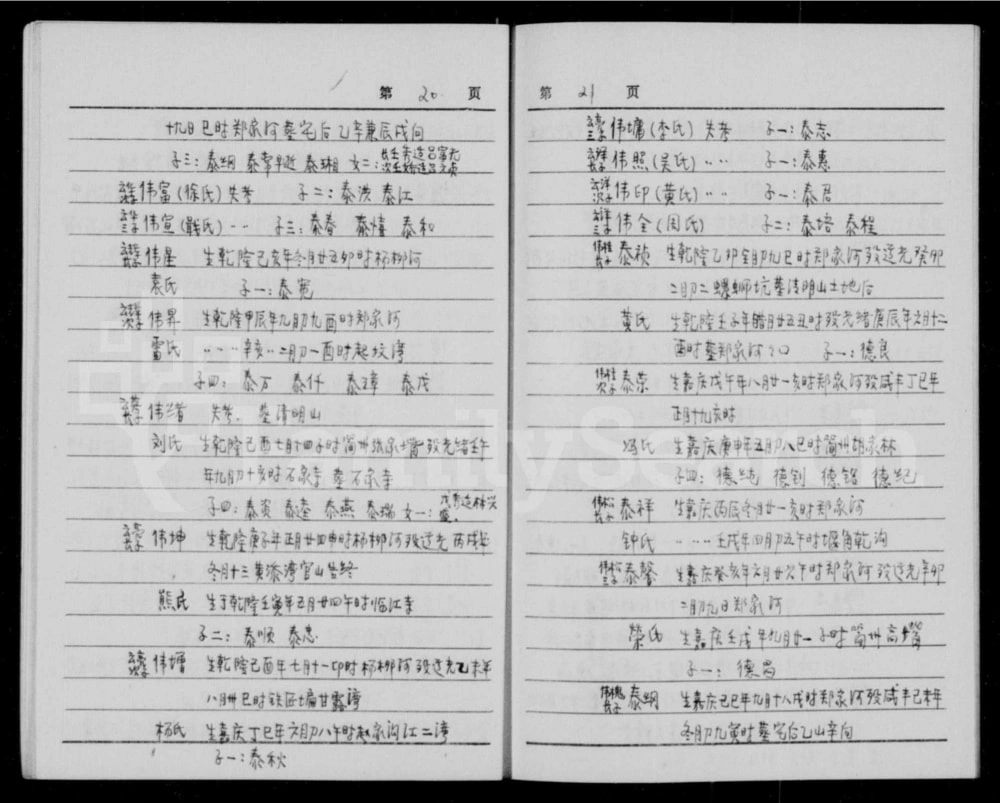 第 20 页
十九日巳时郑家河葬宅后乙辛兼辰戌向
子三：泰纲 泰常早逝 泰瑚 女二：
伟富(徐氏)失考 子二：泰洪 泰江
伟宣(戴氏)〃 子三：泰春 泰僖 泰和
伟星 生乾隆己亥年冬月廿五卯时杨柳河
袁氏 子一：泰宽
伟昇 生乾隆甲辰年九月初九酉时郑家河
雷氏 〃〃〃辛亥〃二月初一酉时起坟湾
子四：泰万 泰仟 泰璋 泰茂
失考 墓清明山
刘氏 生乾隆己酉七月十四子时简州张家 殁光绪壬午
年九月初十亥时石家寺 墓石家寺
子四：泰资 泰逵 泰燕 泰瑞 女一：
伟坤 生乾隆庚子年正月廿四申时杨柳河殁道光丙戌年
冬月十三黄漆湾官山
熊氏 生于乾隆壬寅年五月廿四午时临江寺
子二：泰顺 泰忠
生乾隆己酉年七月十一卯时杨柳河殁道光乙未年
八月卅巳时铁匠塘甘露湾
杨氏 生嘉庆丁巳年六月初八午时赵家沟江二湾
子一：泰秋
第 21 页
伟墉(李氏)失考 子一：泰志
伟照(吴氏)〃〃 子一：泰惠
伟印(黄氏)〃〃 子一：泰君
伟全(周氏) 子二：泰培 泰程
泰祯 生乾隆乙卯年 月初九巳时郑家河殁道光癸卯
二月初二螺蛳坑墓清明山土地后
黄氏 生乾隆壬子年腊月廿五丑时殁光绪庚辰年六月十二
酉时葬郑家河 子一：德良
泰荣 生嘉庆戊午年八月廿一亥时郑家河殁咸丰丁巳年
正月十九亥时
冯氏 生嘉庆庚申年五月初八巳时简州胡家林
子四：德纯 德钊 德锱 德纪
泰祥 生嘉庆丙辰冬月廿一亥时郑家河
钟氏 〃〃〃壬戌年四月初五午时堰角乾沟
泰馨 生嘉庆癸亥年六月廿六午时郑家河殁道光辛卯
二月初九日郑家河
荣氏 生嘉庆壬戌年九月廿一子时简州高
子一：德昌
泰纲 生嘉庆己巳年九月十八戌时郑家河殁咸丰己未年
冬月初九寅时墓宅后乙山辛向